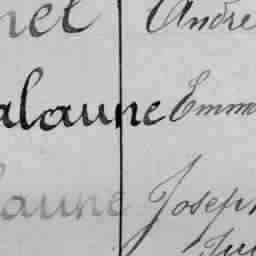 nel André
alaune Emma
laune Joseph